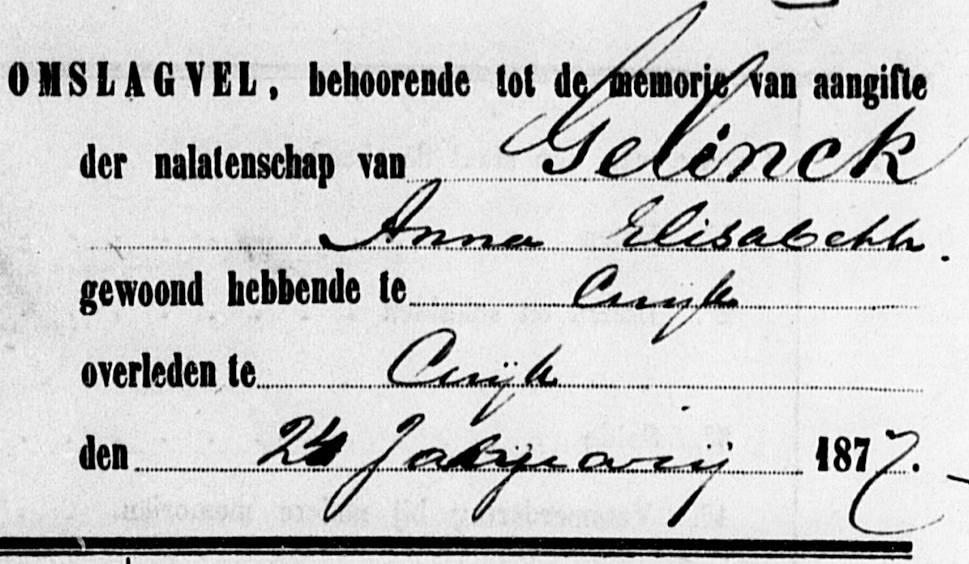 OMSLAGVEL, behoorende tot de memorie van aangifte
der nalatenschap van Gelinck
Anna Elisabeth.
gewoond hebbende te Cuijk
overleden te Cuijk
den 24 Januarij 1877.